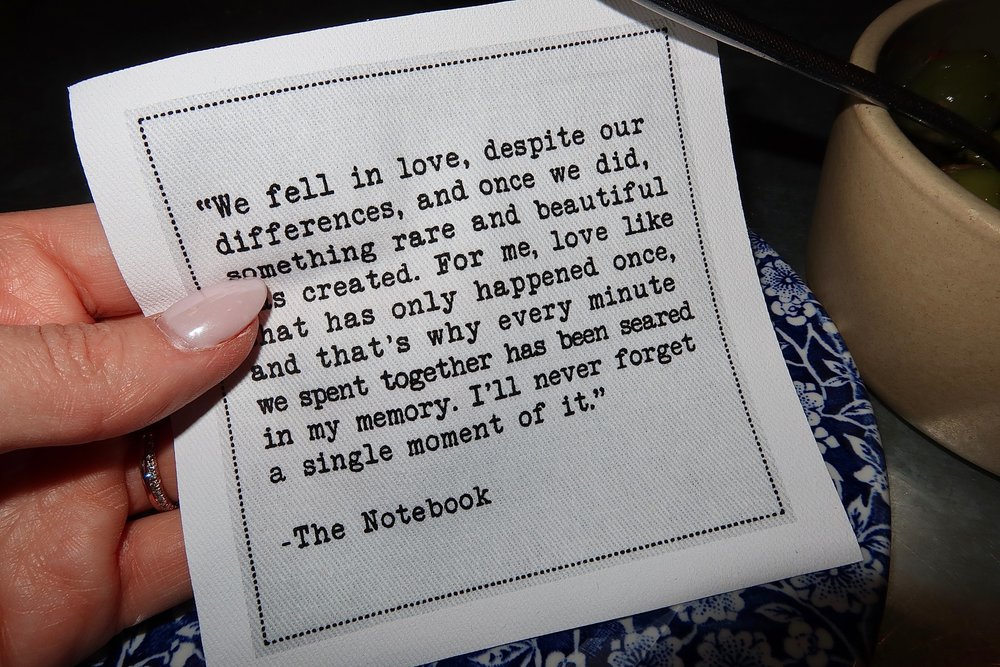 “We fell in love, despite our
differences, and once we did,
something rare and beautiful
s created. For me, love like
hat has only happened once,
and that's why every minute
we spent together has been seared
in my memory. I'll never forget
a single moment of it.”
-The Notebook